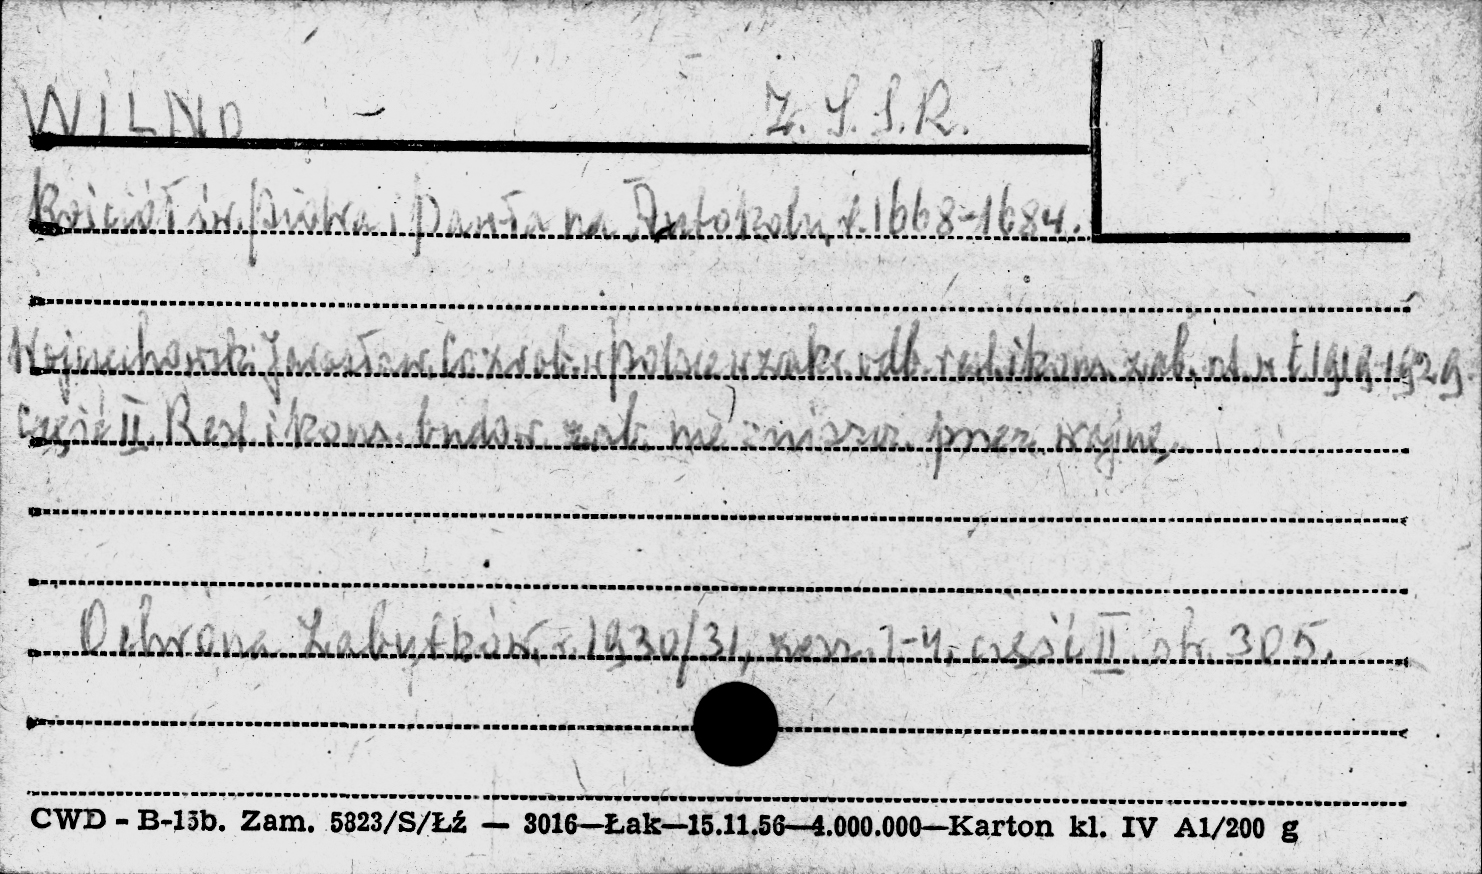 WILNO - Z.S.S.R.
Kościół św. Piotra i Pawła na Antokolu, r. 1668-1684.
Wojciechowski Jarosław, Co zrob. w Polsce w zakr. odb. rest. i kons. zab. szt. w l. 1919-1929.
Część II. Rest. i kons. budow. zab. nie zniszcz. przez wojnę.
Ochrona Zabytków, r. 1930/31, zesz. 1-4, część II. str. 305.
CWD - B-15b. Zam. 5823/S/Łź — 3016—Łak—15.11.56—4.000.000—Karton kl. IV A1/200 g